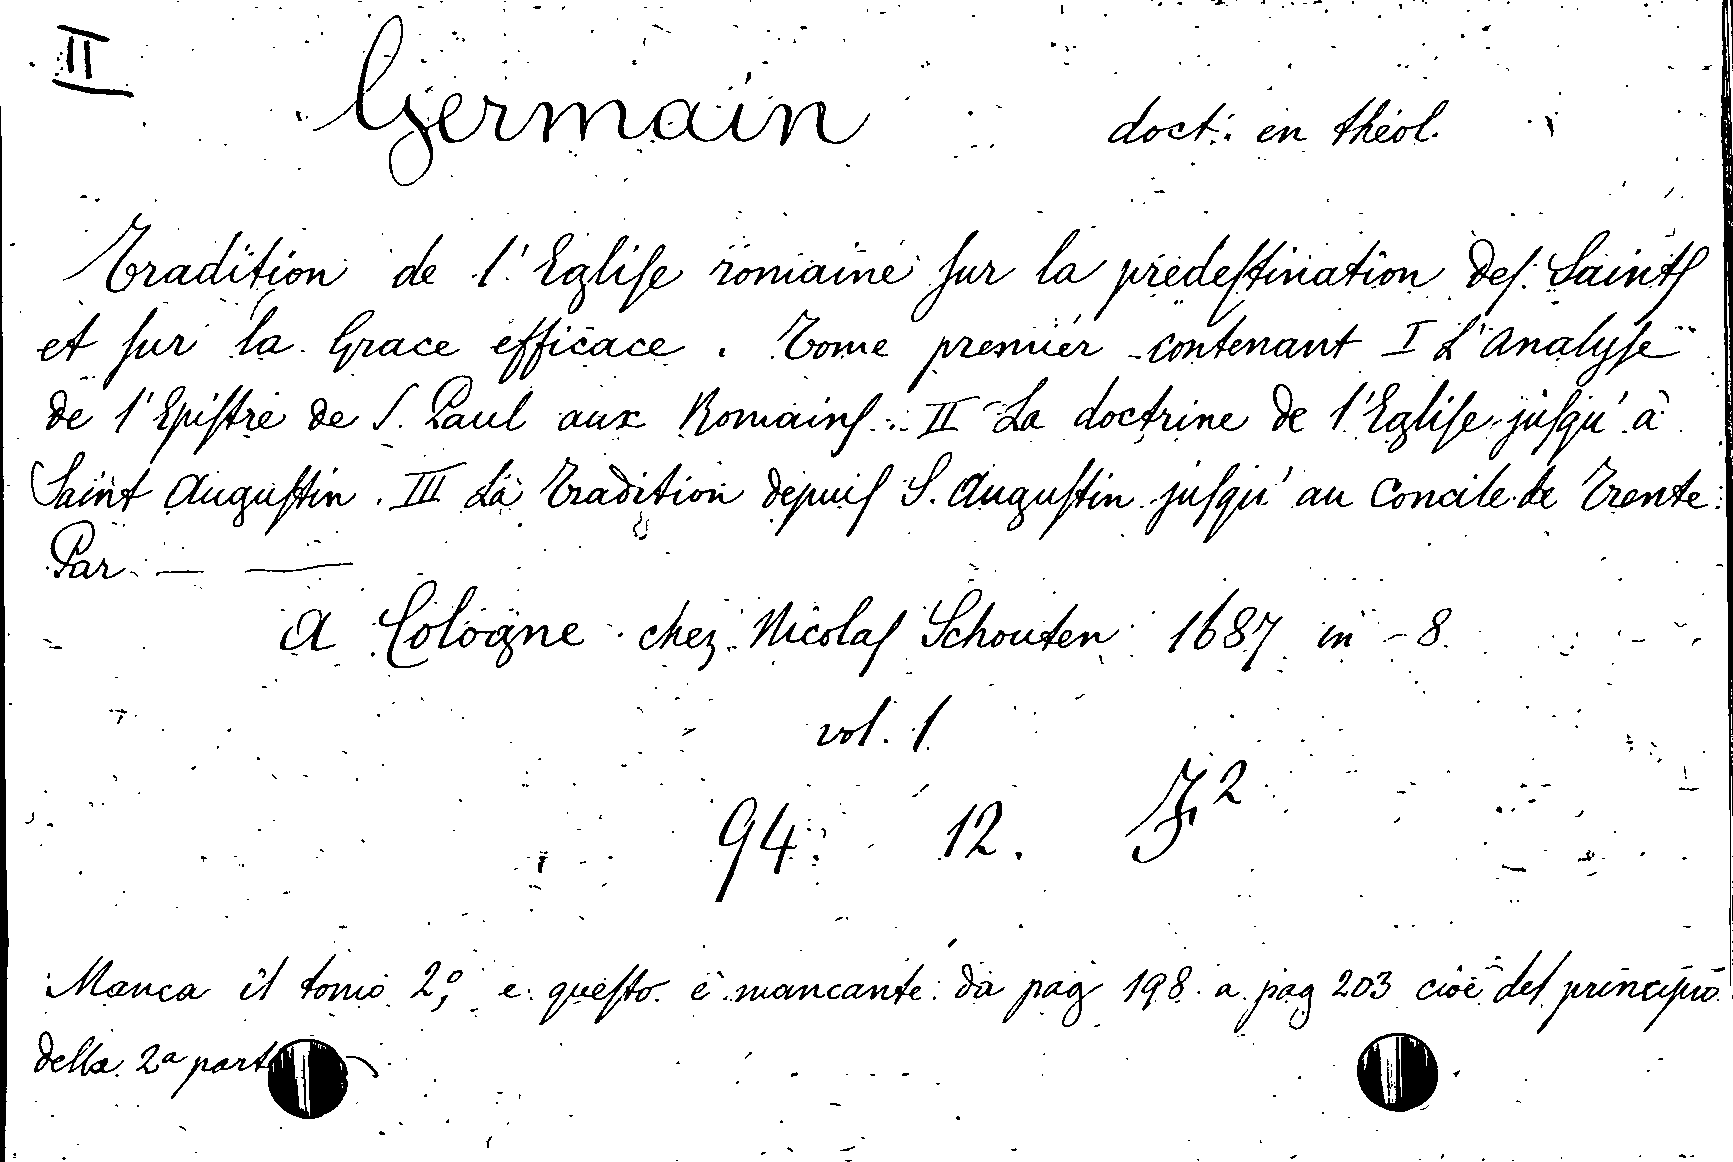 II
Germain doct: en théol.
Tradition de l'Egliſe romaine ſur la prédeſtination deſ Saintſ
et ſur la Grace efficace. Tome premier contenant I L'Analyſe
de l'Epiſtre de S. Paul aux Romainſ. II La doctrine de l'Egliſe juſqu'à
Saint Auguſtin. III La Tradition depuiſ S. Auguſtin juſqu'au Concile de Trente.
Par — —
A Cologne chez Nicolaſ Schouten 1687 in-8.
vol. 1.
94. 12.
Manca il tomo 2º, e queſto è mancante da pag 198 a pag 203 cioè del principio
della 2ª